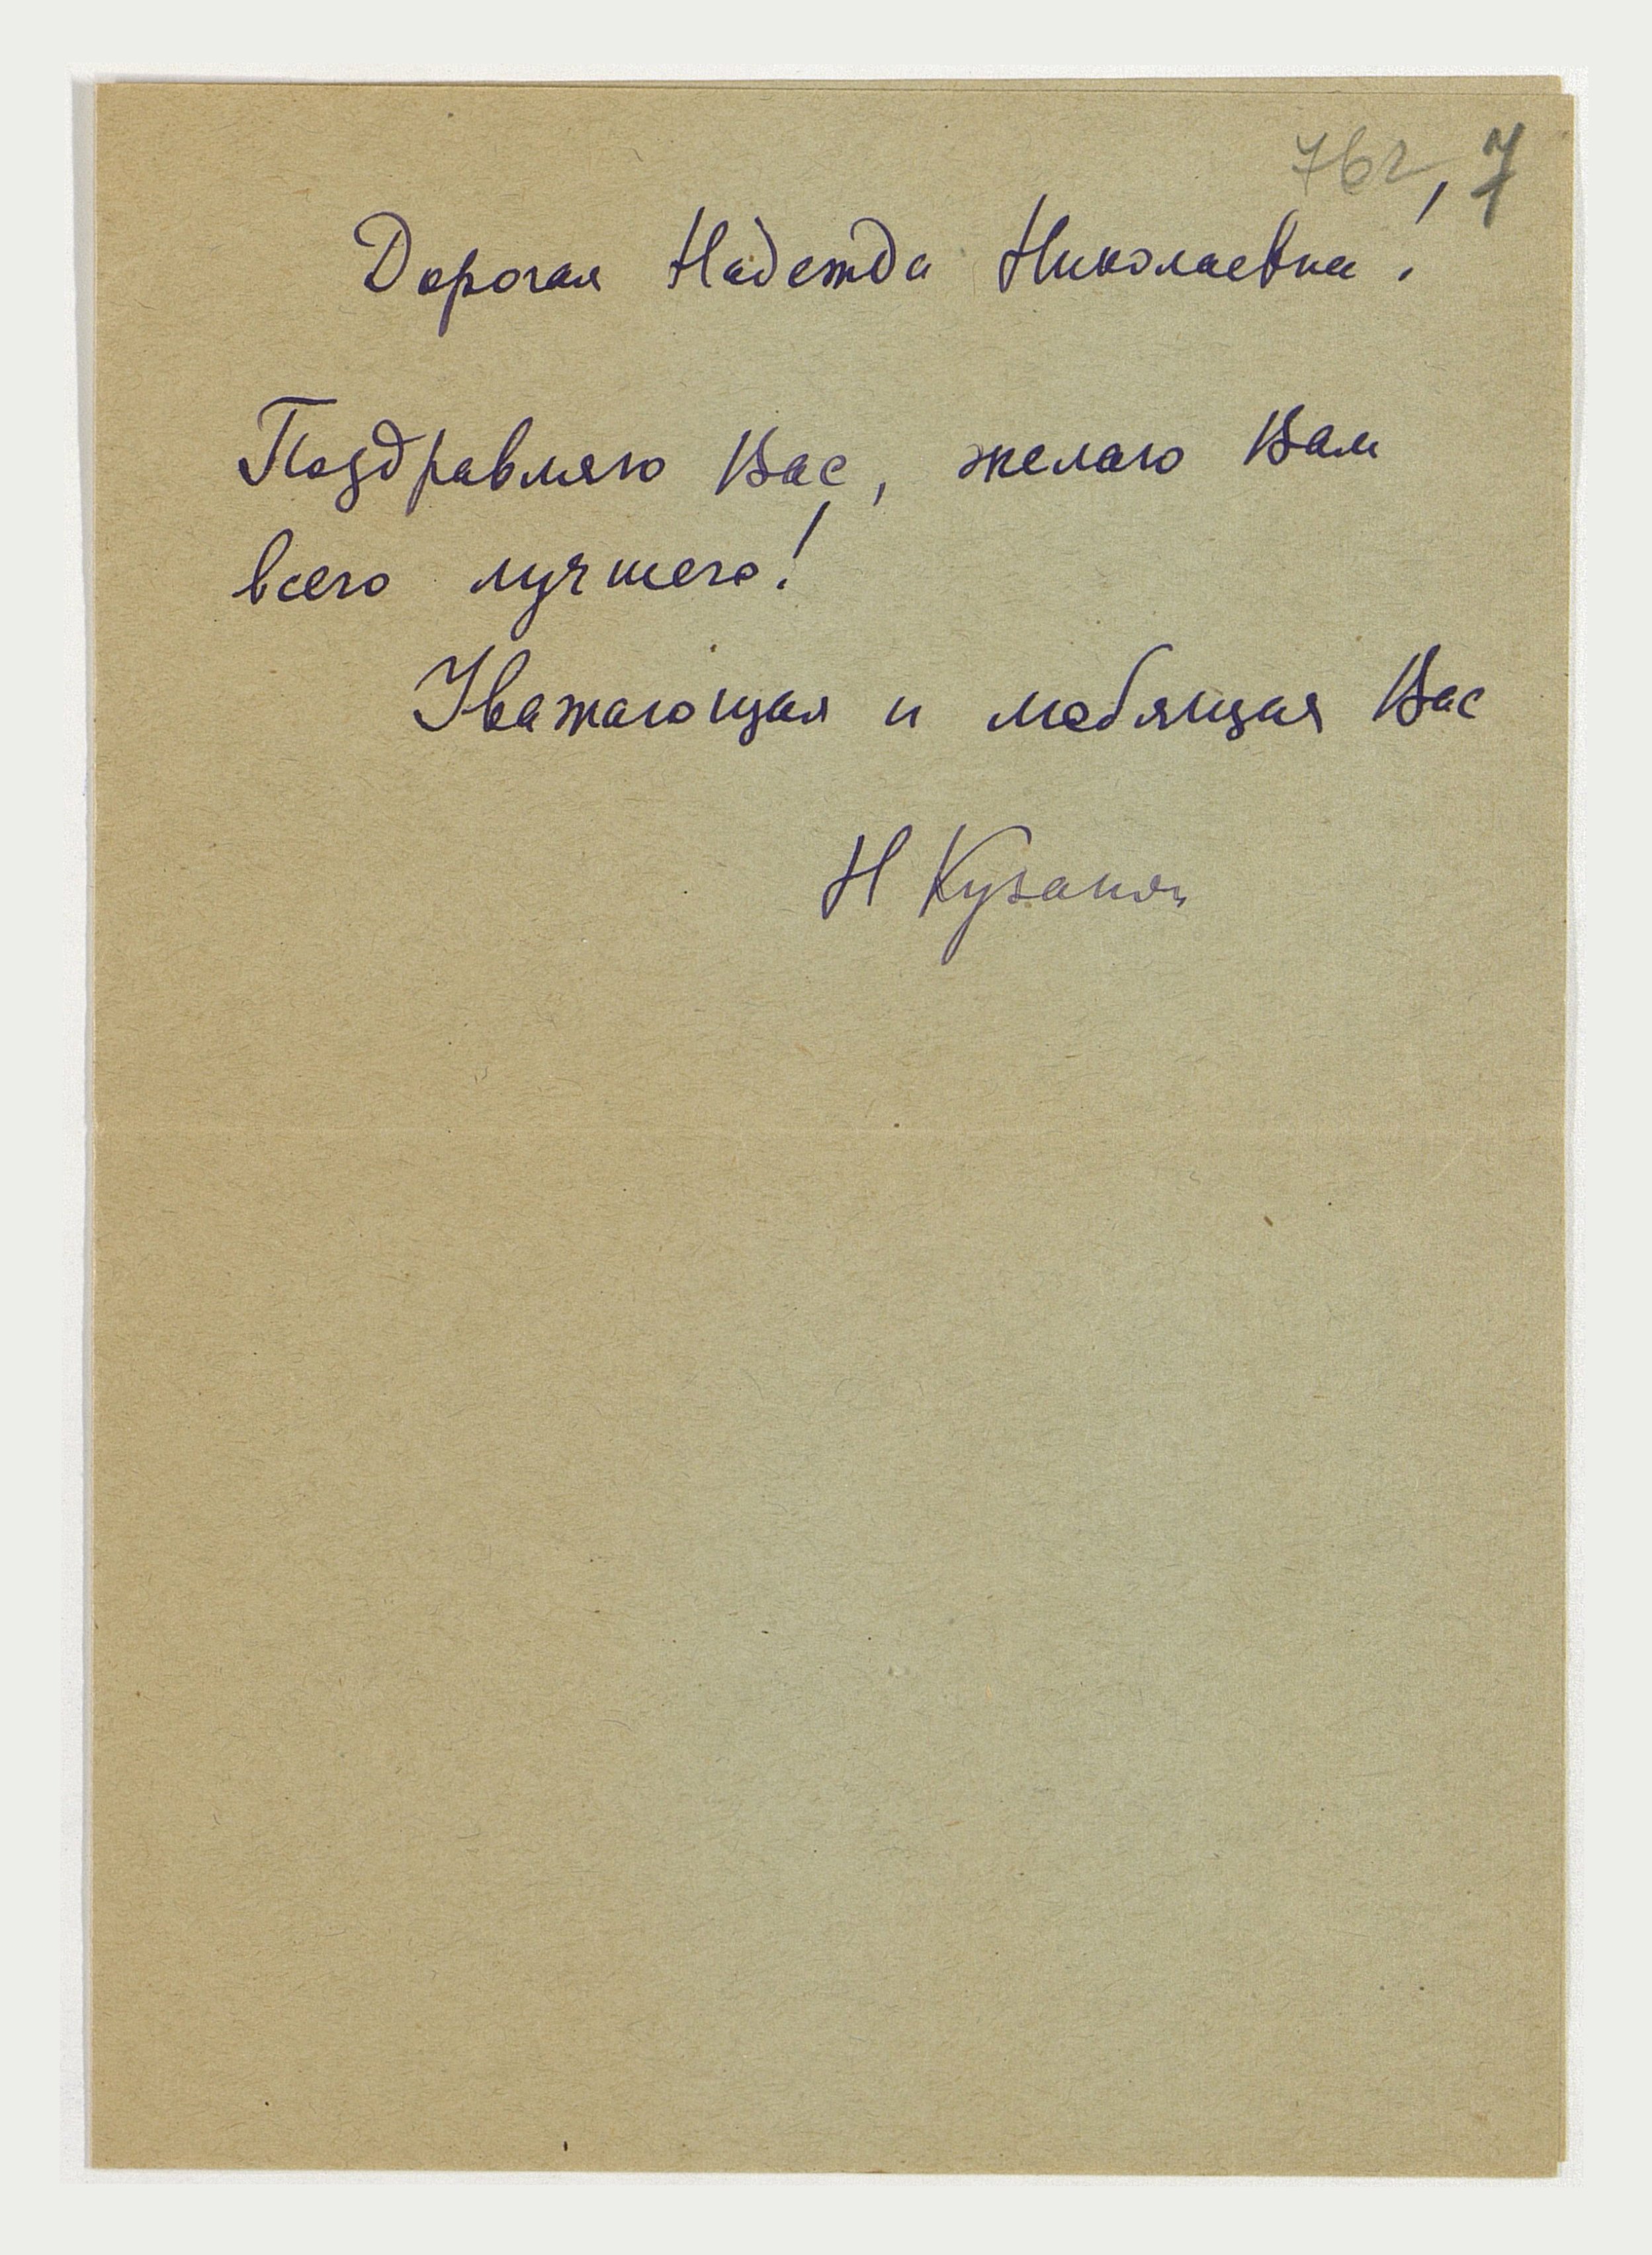 7
Дорогая Надежда Николаевна!
Поздравляю Вас, желаю Вам
всего лучшего!
Уважающая и любящая Вас
Н